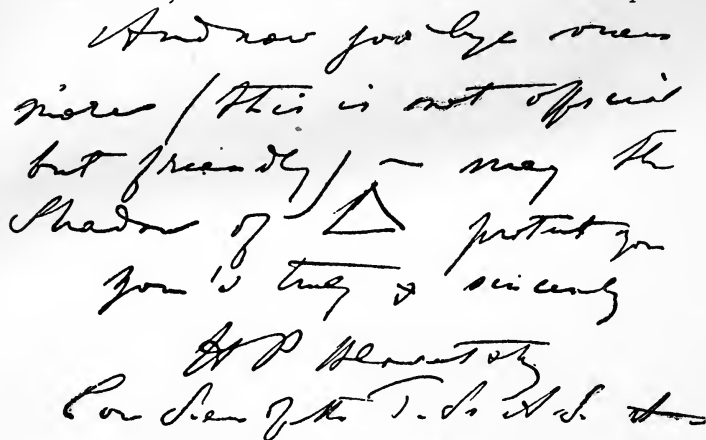 And now goo bye once
more (this is not official
but friendly) — may the
Shadow of △ protect you
You's truly & sincerely
H P Blavatsky
Cor Sec of the T. S. &